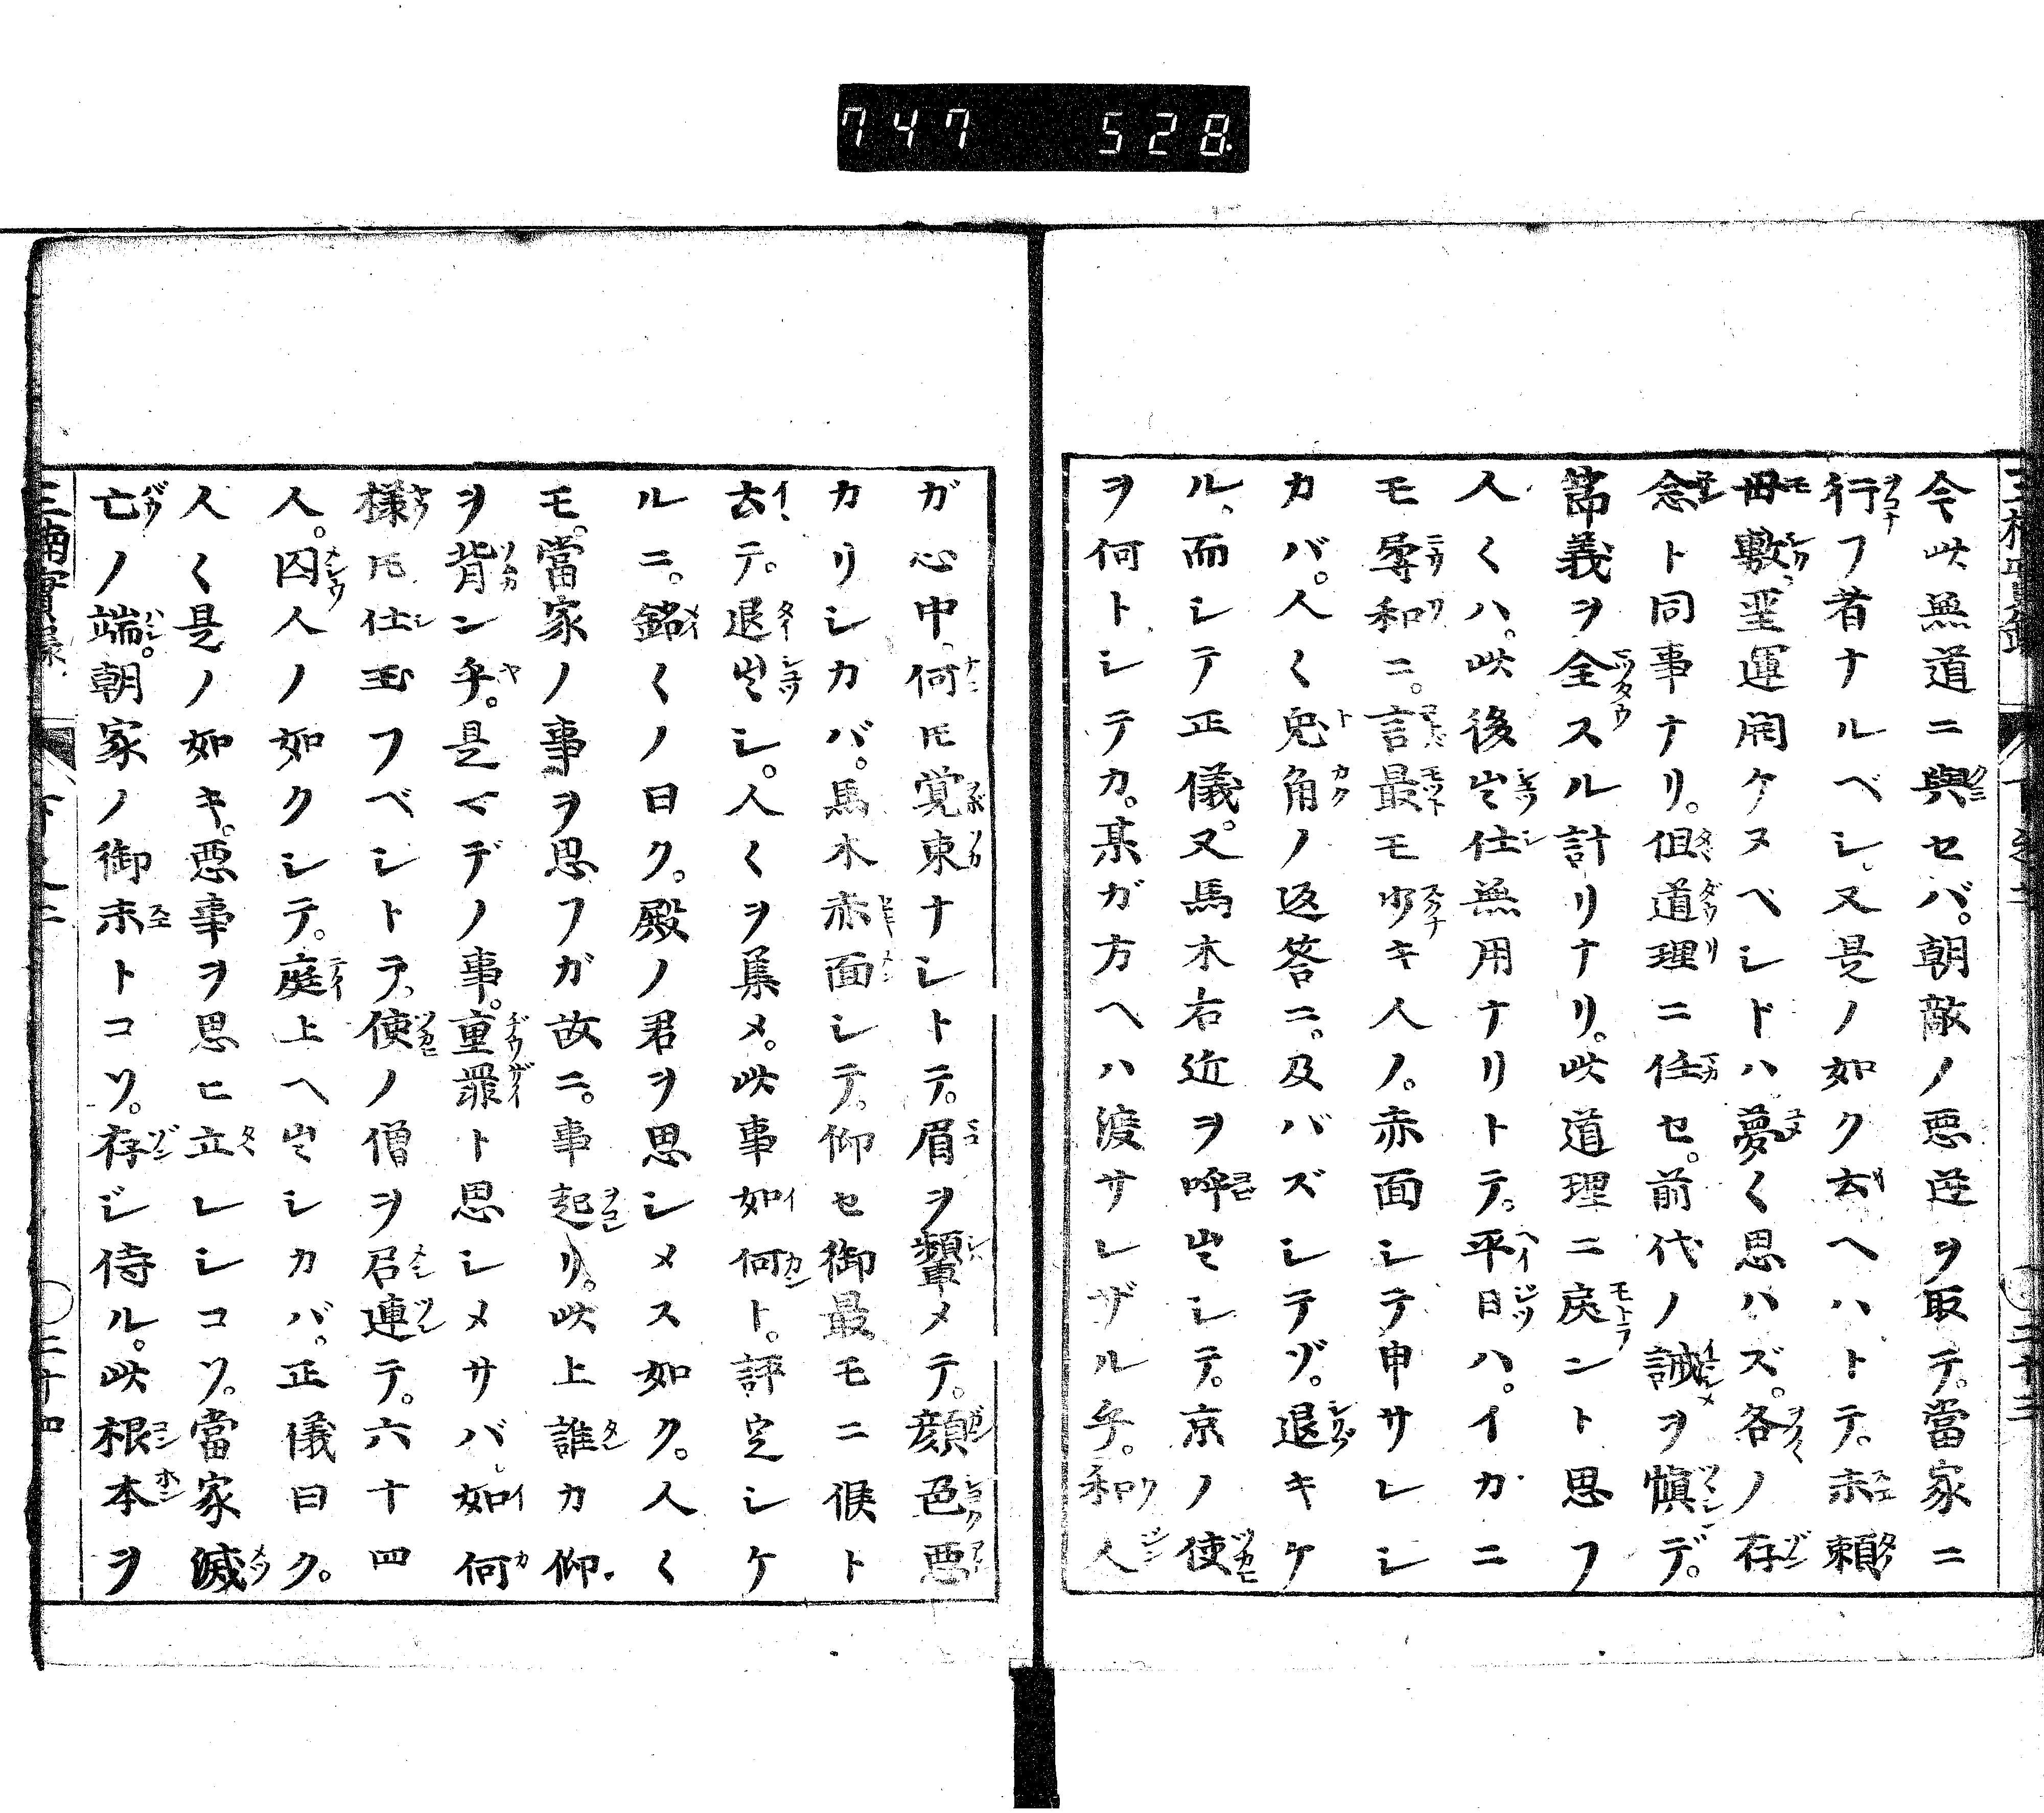 747 528
今此無道ニ與セバ。朝敵ノ悪逆ヲ取テ。當家ニ
行フ者ナルベシ。又是ノ如ク云ヘハトテ。末頼
母敷聖運開ケヌベシドハ。夢〱思ハズ。各ノ存
念ト同事ナリ。但道理ニ任セ。前代ノ誡ヲ愼デ。
節義ヲ全スル計リナリ。此道理ニ戻ント思フ
人〱ハ。此後出仕無用ナリトテ。平日ハ。イカニ
モ辱和ニ。言最モ少キ人ノ。赤面シテ申サレシ
カバ。人〱兎角ノ返答ニ。及バズシテゾ。退キケ
ル。而シテ正儀。又馬木右近ヲ呼出シテ。京ノ使
ヲ何トシテカ。某ガ方ヘハ渡サレザル乎。和人
ガ心中。何𪜈覚東ナシトテ。眉ヲ顰メテ。顔色悪
カリシカバ。馬木赤面シテ。仰セ御最モニ候ト
云テ。退出シ。人〱ヲ集メ。此事如何ト。評定シケ
ルニ。銘〱ノ曰ク。殿ノ君ヲ思シメス如ク。人〱
モ。當家ノ事ヲ思フガ故ニ。事起リ。此上誰カ仰
ヲ背ン乎。是マデノ事。重罪ト思シメサバ。如何
様𪜈仕玉フベシトテ。使ノ僧ヲ召連テ。六十四
人。囚人ノ如クシテ。庭上ヘ出シカバ。正儀曰ク。
人〱是ノ如キ。悪事ヲ思ヒ立レシコソ。當家滅
亡ノ端。朝家ノ御末トコソ。存ジ侍ル。此根本ヲ